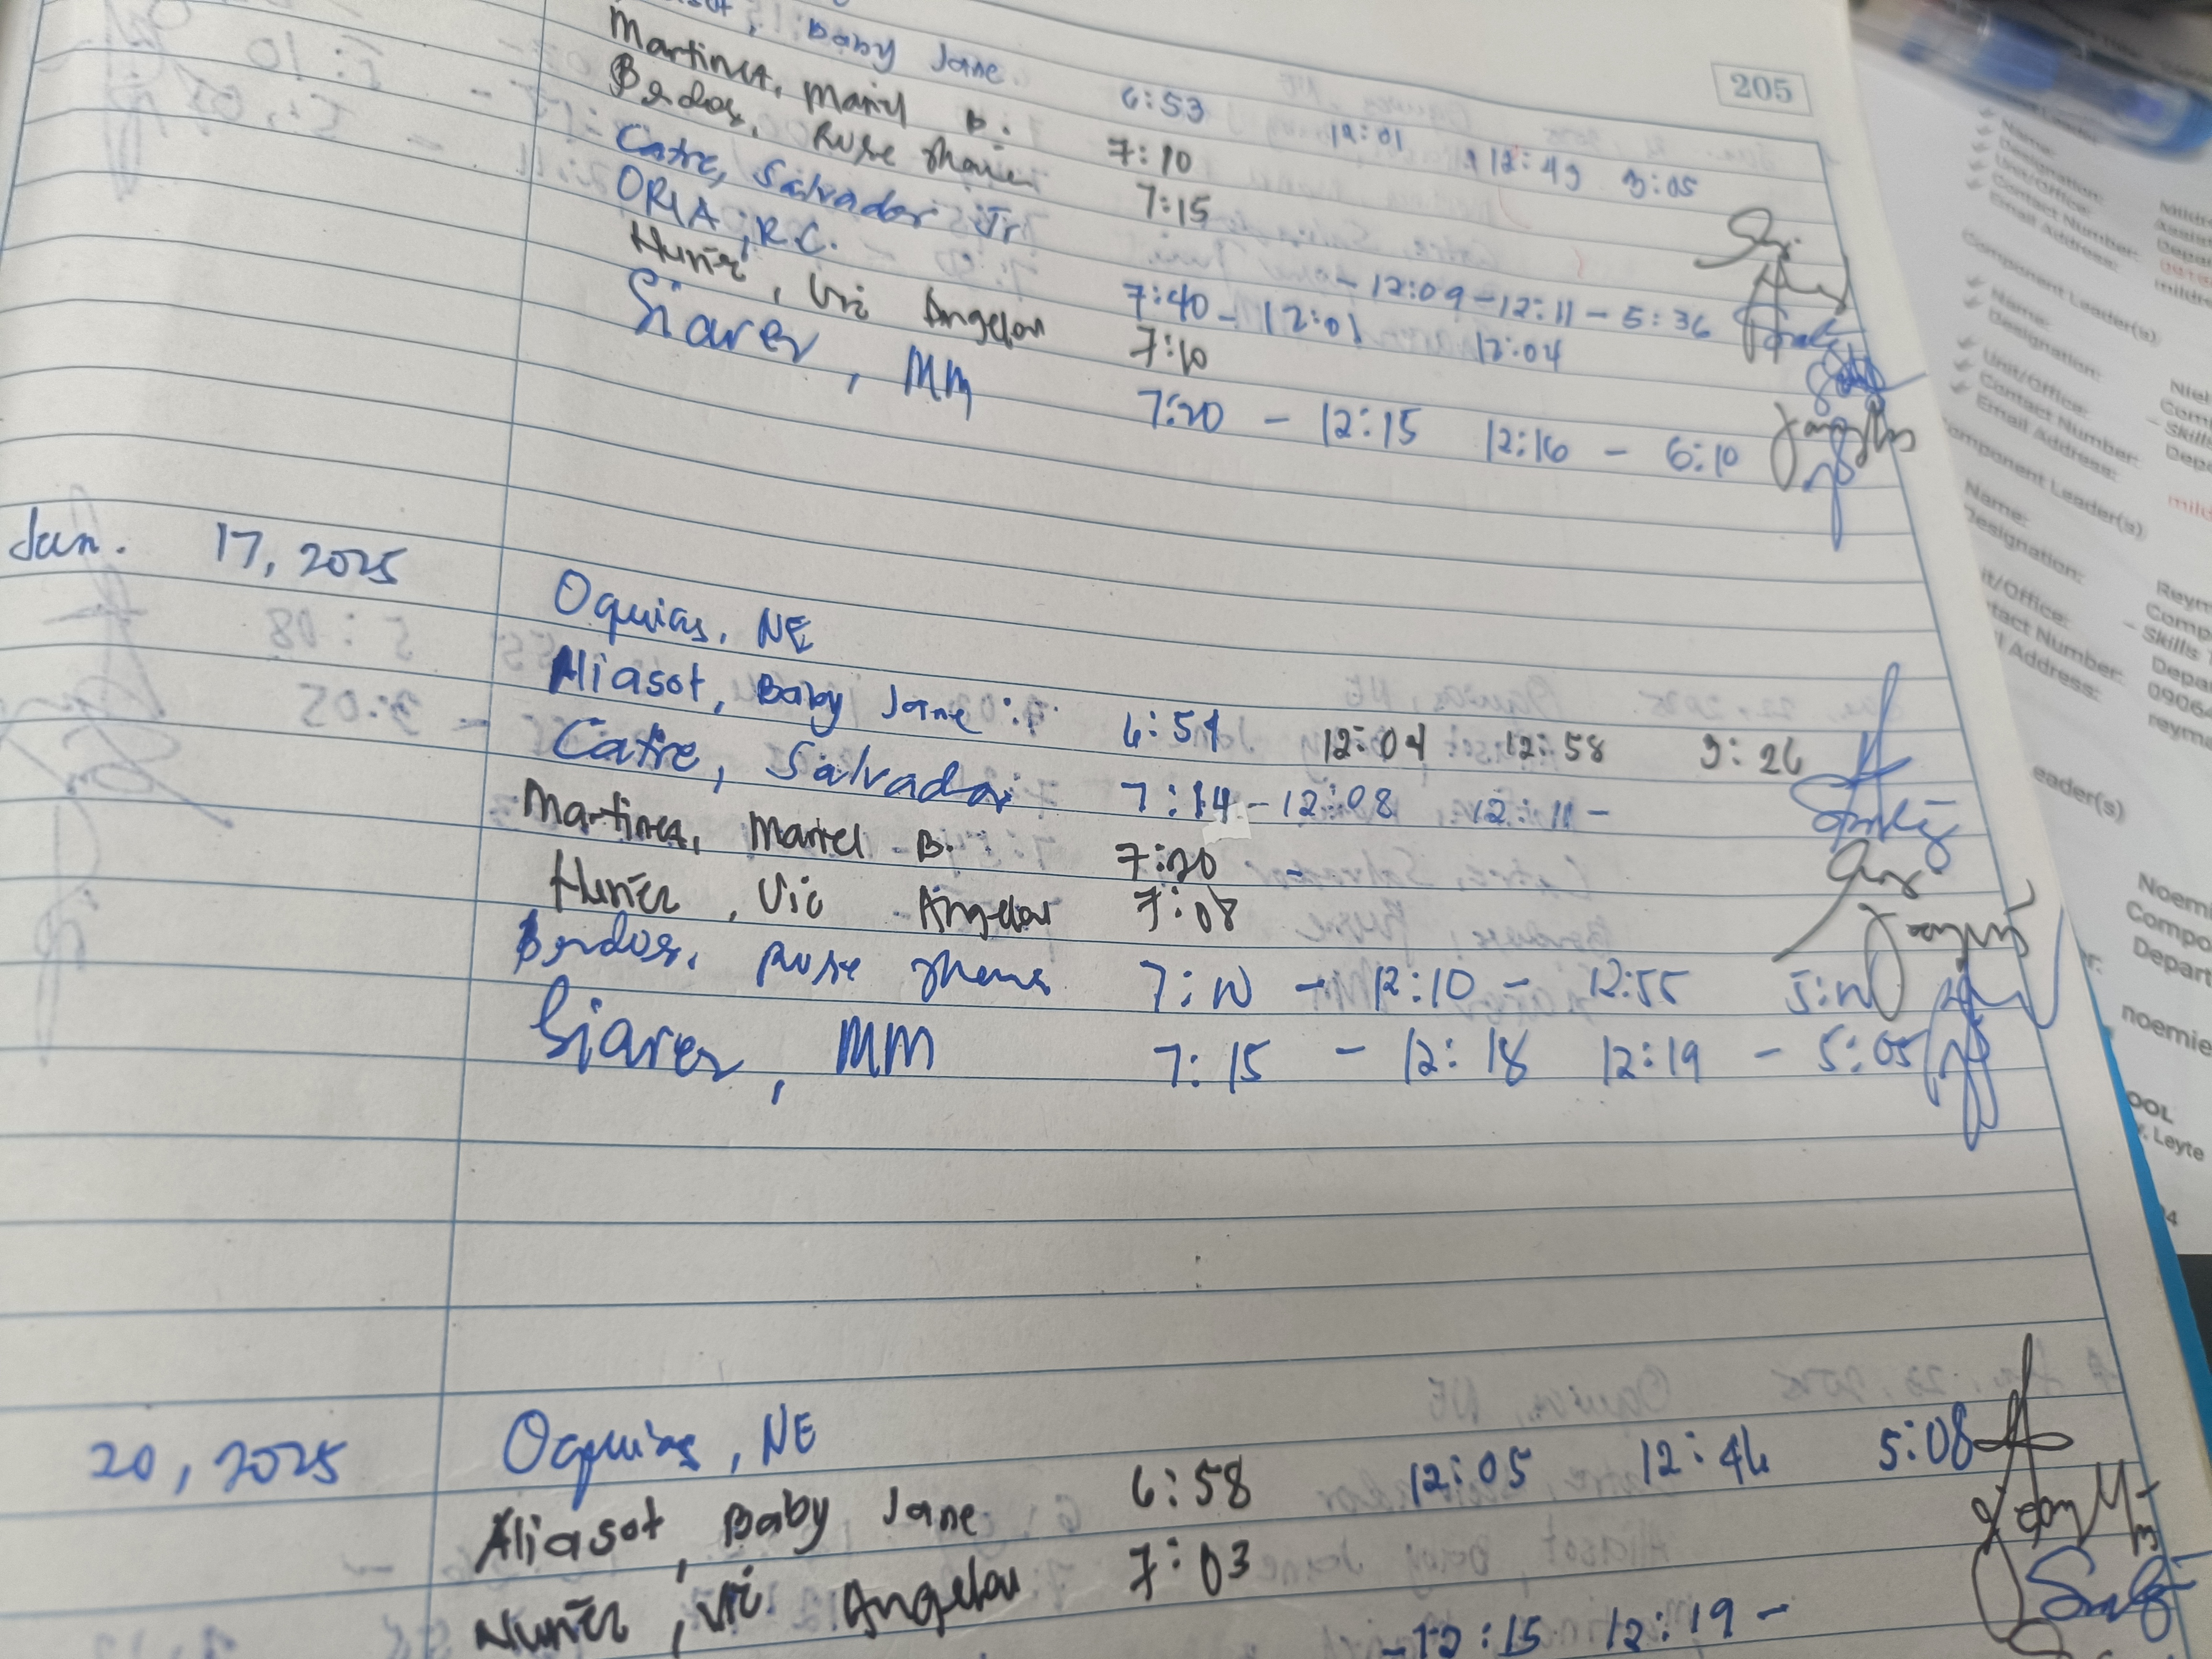 Baby Jane 6:53 12:01 12:49 3:05
205
Martinez, Mariel B. 7:10
Berdos, Rose 7:15
Catre, Salvador Jr. - 12:09 - 12:11 - 5:36
ORIA, R.C. 7:40 - 12:01 12:04
Nuñez, Vic Angelou 7:10
Siarez, MM 7:20 - 12:15 12:16 - 6:10
Jan. 17, 2025 Oquias, NE
Aliasot, Baby Jane 6:54 12:04 12:58 3:26
Catre, Salvador 7:14 - 12:08 12:11 -
Martinez, Mariel B. 7:20
Nuñez, Vic Angelou 7:08
Berdos, Rose 7:10 - 12:10 - 12:55
Siarez, MM 7:15 - 12:18 12:19 - 5:05
20, 2025 Oquias, NE
Aliasot, Baby Jane 6:58 12:05 12:46 5:08
Nuñez, Vic Angelou 7:03
- 12:15 12:19 -
Name:
Designation:
Unit/Office:
Contact Number:
Email Address:
Component Leader(s)
Name:
Designation:
Unit/Office:
Contact Number:
Email Address:
omponent Leader(s)
Name:
Designation:
it/Office:
tact Number:
Address:
eader(s)
Reym
Comp
- Skills
Depa
0906
reyma
Noemi
Compo
Depart
noemie
OOL
Leyte